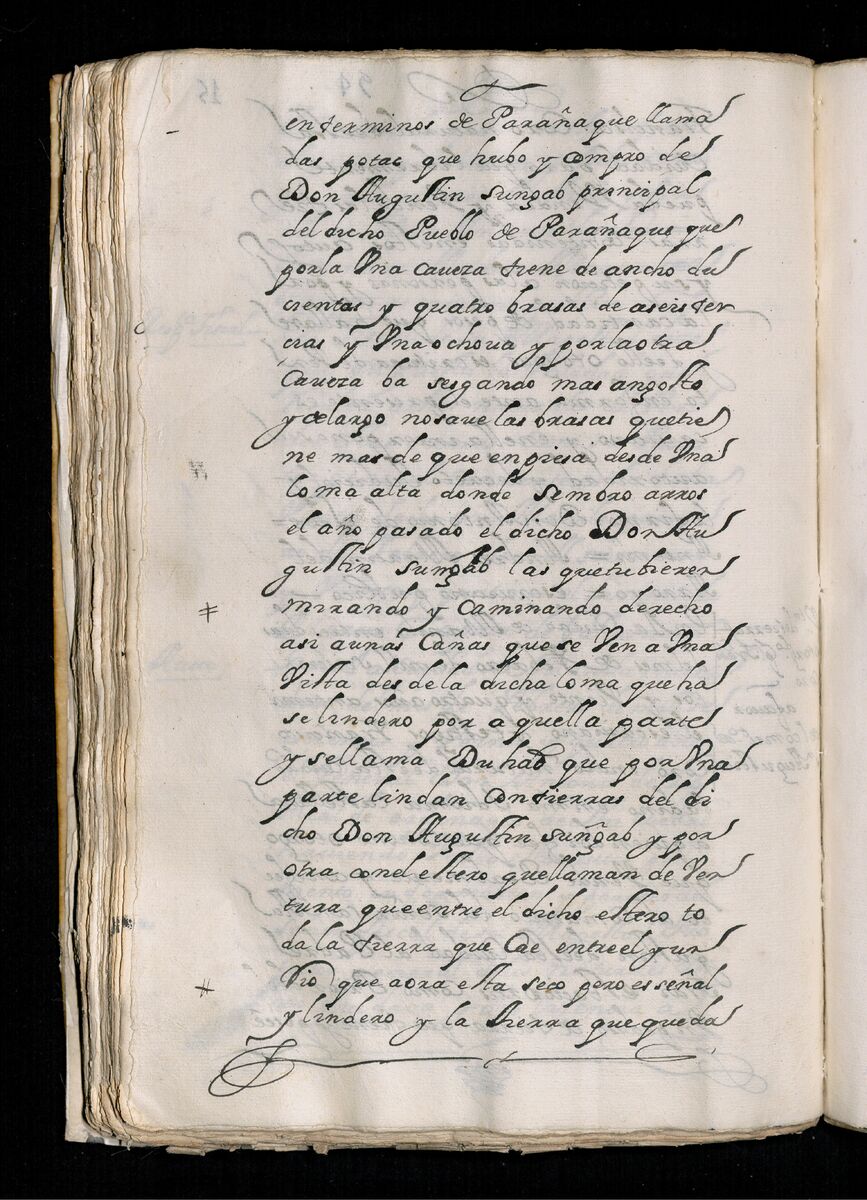 en terminos de Parañaque llama
das potac que hubo y compro de
Don Augustin sungab principal
del dicho Pueblo de Parañaque que
por la Vna caveza tiene de ancho du
cientas y quatro brasas de a seis ter
cias y Vna ochoua y por la otra
Caveza ba sesgando mas angosto
y de largo no save las brasas que tie
ne mas de que enpiesa desde Vna
loma alta donde sembro arros
el año pasado el dicho Don Au
gustin sungab las que tubieren
mirando y Caminando derecho
asi a unas Cañas que se Ven a Vna
Vista desde la dicha loma que ha
se lindero por aquella parte
y se llama Duhab que por Vna
parte lindan Con tierras del di
cho Don Augustin suñgab y por
otra con el estero que llaman de Ven
tura que entre el dicho estero to
da la tierra que Cae entre el y un
Rio que aora esta seco pero es señal
y lindero y la tierra que queda